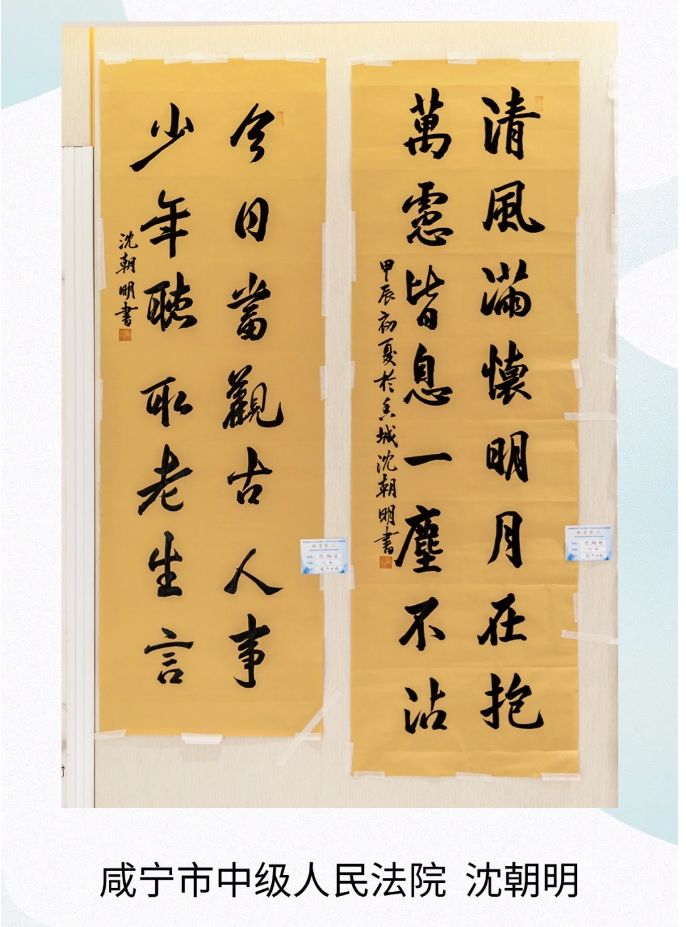 清風滿懷明月在抱
萬慮皆息一塵不沾
甲辰初夏於香城沈朝明書
今日當觀古人事
少年聽取老生言
沈朝明書
咸宁市中级人民法院 沈朝明